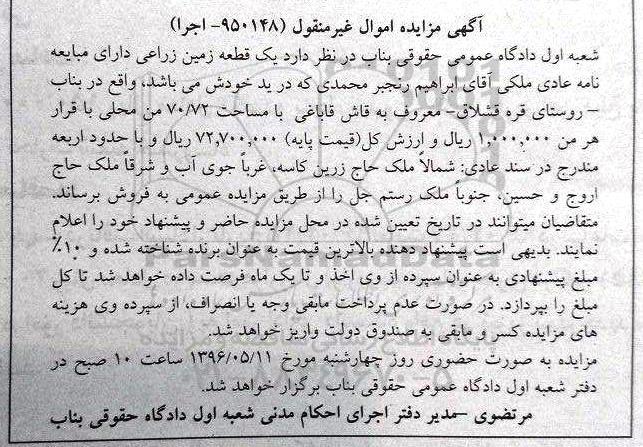 آگهی مزایده اموال غیرمنقول (۹۵۰۱۴۸- اجرا)
شعبه اول دادگاه عمومی حقوقی بناب در نظر دارد یک قطعه زمین زراعی دارای مبایعه
نامه عادی ملکی آقای ابراهیم رنجبر محمدی که در ید خودش می باشد، واقع در بناب
– روستای قره قشلاق- معروف به قاش قاباغی با مساحت ۷۰/۷۲ من محلی با قرار
هر من ۱,۰۰۰,۰۰۰ ریال و ارزش کل(قیمت پایه) ۷۲,۷۰۰,۰۰۰ ریال و با حدود اربعه
مندرج در سند عادی: شمالاً ملک حاج زرین کاسه، غرباً جوی آب و شرقاً ملک حاج
اروج و حسین، جنوباً ملک رستم جل را از طریق مزایده عمومی به فروش برساند.
متقاضیان میتوانند در تاریخ تعیین شده در محل مزایده حاضر و پیشنهاد خود را اعلام
نمایند. بدیهی است پیشنهاد دهنده بالاترین قیمت به عنوان برنده شناخته شده و ۱۰٪
مبلغ پیشنهادی به عنوان سپرده از وی اخذ و تا یک ماه فرصت داده خواهد شد تا کل
مبلغ را بپردازد. در صورت عدم پرداخت مابقی وجه یا انصراف، از سپرده وی هزینه
های مزایده کسر و مابقی به صندوق دولت واریز خواهد شد.
مزایده به صورت حضوری روز چهارشنبه مورخ ۱۳۹۶/۰۵/۱۱ ساعت ۱۰ صبح در
دفتر شعبه اول دادگاه عمومی حقوقی بناب برگزار خواهد شد.
مرتضوی –مدیر دفتر اجرای احکام مدنی شعبه اول دادگاه حقوقی بناب